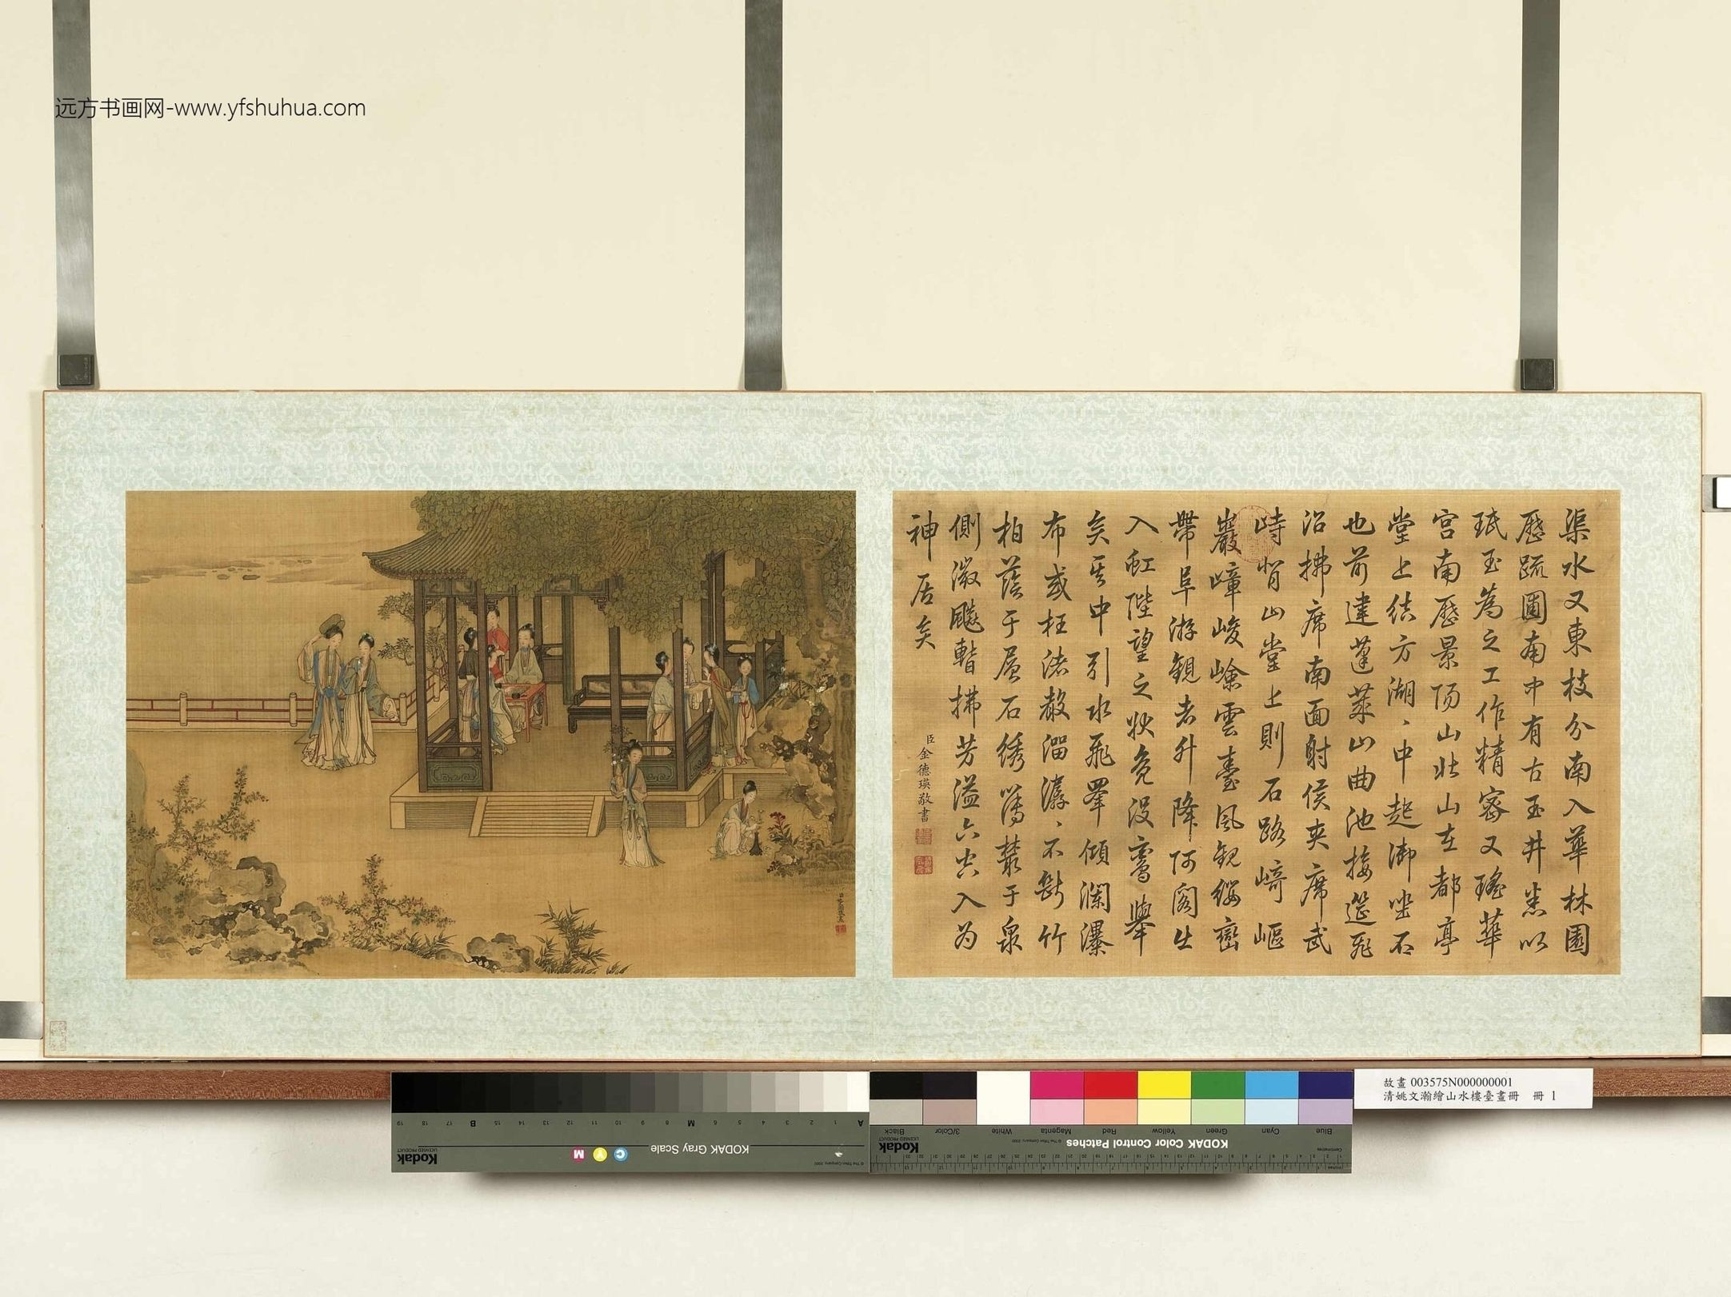 远方书画网-www.yfshuhua.com
渠水又東枝分南入華林園
歷疏圃南中有古玉井悉以
珉玉為之工作精密又瑤華
宮南歷景陽山北山在都亭
堂上結方湖、中起御坐石
也前建蓬萊山曲池接筵飛
沼拂席南面射侯夾席武
峙背山堂上則石路崎嶇
巖嶂峻嶮雲臺風觀纓巒
帶阜游觀者升降阿閣出
入虹陛望之狀鳧沒鸞舉
矣其中引水飛皋傾瀾瀑
布或枉渚聲溜潺、不斷竹
柏蔭于層石綉薄叢于泉
側微飈暫拂芳溢六空入為
神居矣
臣金德瑛敬書
故畫 003575N000000001
清姚文瀚繪山水樓臺畫冊 冊 1
KODAK Gray Scale
Kodak
C Y M
A 1 2 3 4 5 6 M 8 9 10 11 12 13 14 15 B 17 18 19
KODAK Color Control Patches
Kodak
Blue Cyan Green Yellow Red Magenta White 3/Color Black